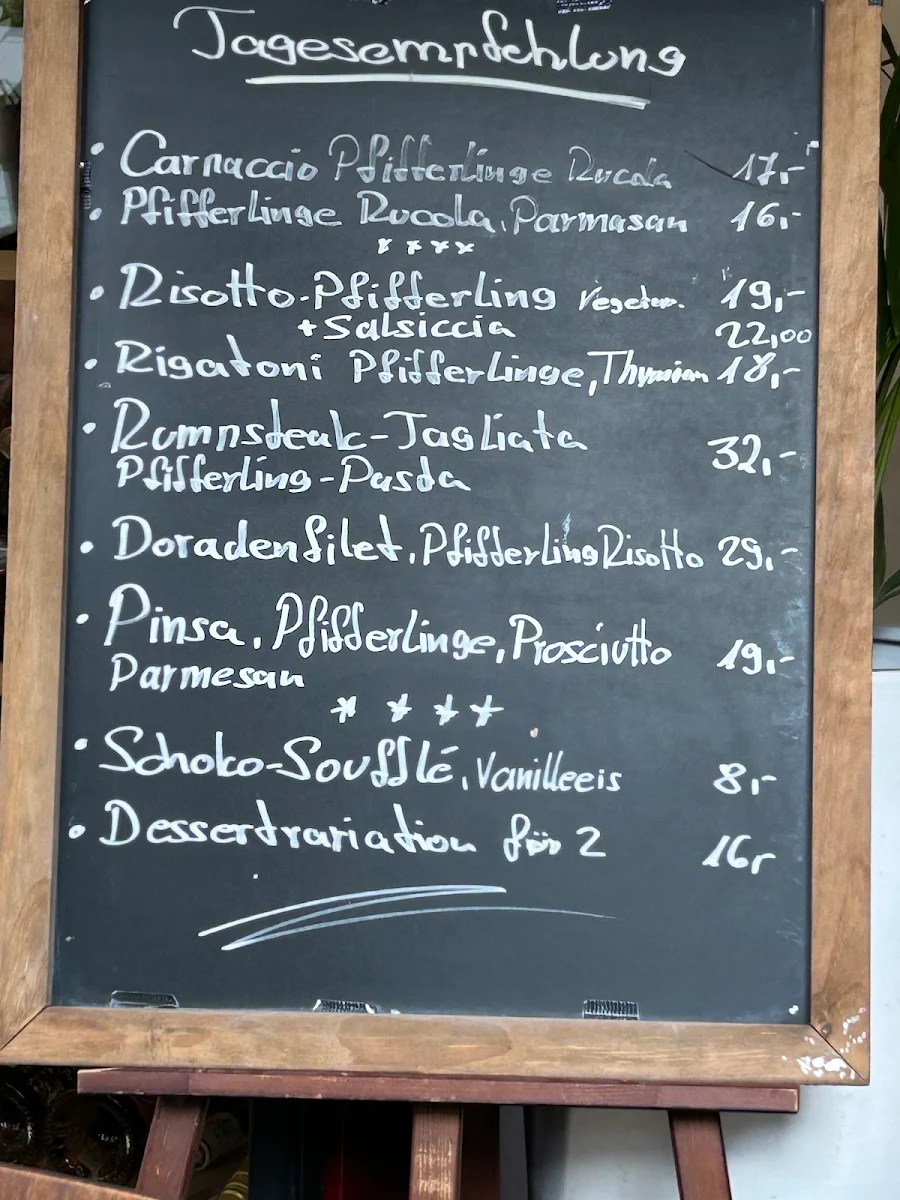 Tagesempfehlung
• Carpaccio Pfifferlinge Rucola 17,-
• Pfifferlinge Rucola, Parmasan 16,-
* * * *
• Risotto-Pfifferling Vegetar. 19,-
+ Salsiccia 22,00
• Rigatoni Pfifferlinge, Thymian 18,-
• Rumpsteak-Tagliata
Pfifferling-Pasta 32,-
• Doradenfilet, Pfifferling Risotto 29,-
• Pinsa, Pfifferlinge, Prosciutto 19,-
Parmesan
* * * *
• Schoko-Soufflé, Vanilleeis 8,-
• Dessertvariation für 2 16,-